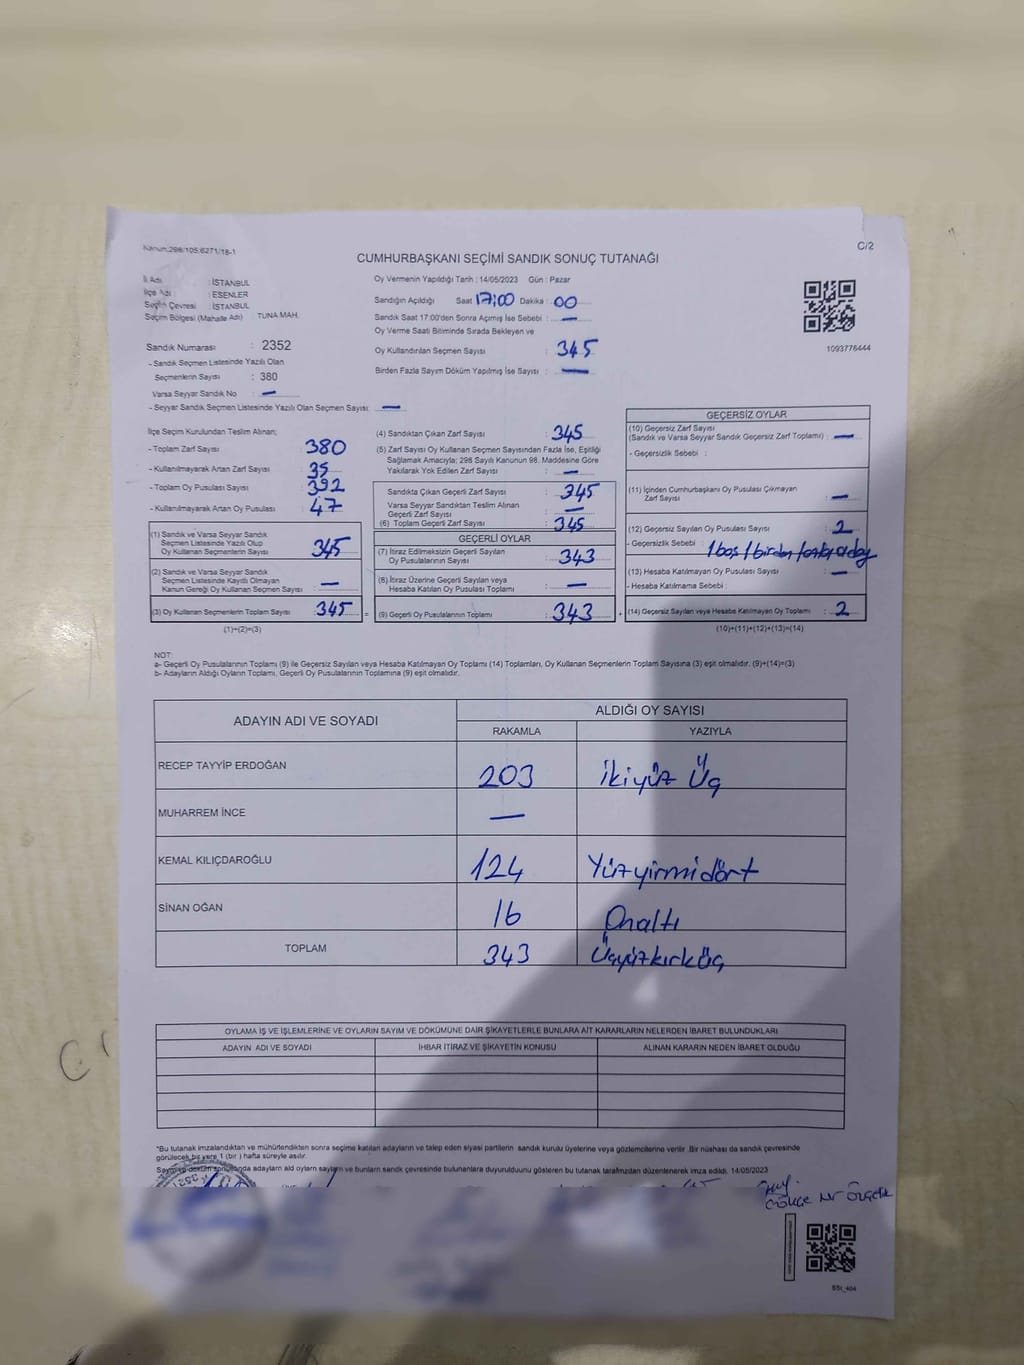 Kanun:298/105,6271/18-1
C/2
CUMHURBAŞKANI SEÇİMİ SANDIK SONUÇ TUTANAĞI
İl Adı : İSTANBUL
İlçe Adı : ESENLER
Seçim Çevresi : İSTANBUL
Seçim Bölgesi (Mahalle Adı) : TUNA MAH.
Sandık Numarası : 2352
- Sandık Seçmen Listesinde Yazılı Olan
Seçmenlerin Sayısı : 380
Varsa Seyyar Sandık No : —
- Seyyar Sandık Seçmen Listesinde Yazılı Olan Seçmen Sayısı : —
Oy Vermenin Yapıldığı Tarih : 14/05/2023 Gün : Pazar
Sandığın Açıldığı Saat 17:00 Dakika : 00
Sandık Saat 17:00'den Sonra Açımış İse Sebebi : —
Oy Verme Saati Bitiminde Sırada Bekleyen ve
Oy Kullandırılan Seçmen Sayısı : 345
Birden Fazla Sayım Döküm Yapılmış İse Sayısı : —
1093776444
İlçe Seçim Kurulundan Teslim Alınan;
- Toplam Zarf Sayısı : 380
- Kullanılmayarak Artan Zarf Sayısı : 35
- Toplam Oy Pusulası Sayısı : 392
- Kullanılmayarak Artan Oy Pusulası : 47
(1) Sandık ve Varsa Seyyar Sandık
Seçmen Listesinde Yazılı Olup
Oy Kullanan Seçmenlerin Sayısı : 345
(2) Sandık ve Varsa Seyyar Sandık
Seçmen Listesinde Kayıtlı Olmayan
Kanun Gereği Oy Kullanan Seçmen Sayısı : —
(3) Oy Kullanan Seçmenlerin Toplam Sayısı : 345 =
(1)+(2)=(3)
(4) Sandıktan Çıkan Zarf Sayısı : 345
(5) Zarf Sayısı Oy Kullanan Seçmen Sayısından Fazla İse, Eşitliği
Sağlamak Amacıyla; 298 Sayılı Kanunun 98. Maddesine Göre
Yakılarak Yok Edilen Zarf Sayısı : —
Sandıkta Çıkan Geçerli Zarf Sayısı : 345
Varsa Seyyar Sandıktan Teslim Alınan
Geçerli Zarf Sayısı : —
(6) Toplam Geçerli Zarf Sayısı : 345
GEÇERLİ OYLAR
(7) İtiraz Edilmeksizin Geçerli Sayılan
Oy Pusulalarının Sayısı : 343
(8) İtiraz Üzerine Geçerli Sayılan veya
Hesaba Katılan Oy Pusulası Toplamı : —
(9) Geçerli Oy Pusulalarının Toplamı : 343 +
GEÇERSİZ OYLAR
(10) Geçersiz Zarf Sayısı
(Sandık ve Varsa Seyyar Sandık Geçersiz Zarf Toplamı) : —
- Geçersizlik Sebebi :
(11) İçinden Cumhurbaşkanı Oy Pusulası Çıkmayan
Zarf Sayısı : —
(12) Geçersiz Sayılan Oy Pusulası Sayısı : 2
- Geçersizlik Sebebi : 1 boş / birden
(13) Hesaba Katılmayan Oy Pusulası Sayısı : —
- Hesaba Katılmama Sebebi :
(14) Geçersiz Sayılan veya Hesaba Katılmayan Oy Toplamı : 2
(10)+(11)+(12)+(13)=(14)
NOT:
a- Geçerli Oy Pusulalarının Toplamı (9) ile Geçersiz Sayılan veya Hesaba Katılmayan Oy Toplamı (14) Toplamları, Oy Kullanan Seçmenlerin Toplam Sayısına (3) eşit olmalıdır. (9)+(14)=(3)
b- Adayların Aldığı Oyların Toplamı, Geçerli Oy Pusulalarının Toplamına (9) eşit olmalıdır.
ADAYIN ADI VE SOYADI ALDIĞI OY SAYISI
RAKAMLA YAZIYLA
RECEP TAYYİP ERDOĞAN 203 İkiyüz Üç
MUHARREM İNCE —
KEMAL KILIÇDAROĞLU 124 Yüzyirmidört
SİNAN OĞAN 16 Onaltı
TOPLAM 343 Üçyüzkırküç
OYLAMA İŞ VE İŞLEMLERİNE VE OYLARIN SAYIM VE DÖKÜMÜNE DAİR ŞİKAYETLERLE BUNLARA AİT KARARLARIN NELERDEN İBARET BULUNDUKLARI
ADAYIN ADI VE SOYADI İHBAR İTİRAZ VE ŞİKAYETİN KONUSU ALINAN KARARIN NEDEN İBARET OLDUĞU
*Bu tutanak imzalandıktan ve mühürlendikten sonra seçime katılan adayların ve talep eden siyasi partilerin sandık kurulu üyelerine veya gözlemcilerine verilir .Bir nüshası da sandık çevresinde
görülecek bir yere 1 (bir ) hafta süreyle asılır.
Sayım ve döküm sonucunda adayların aldı oyların sayları ve bunların sandık çevresinde bulunanlara duyurulduunu gösteren bu tutanak tarafımızdan düzenlenerek imza edildi. 14/05/2023